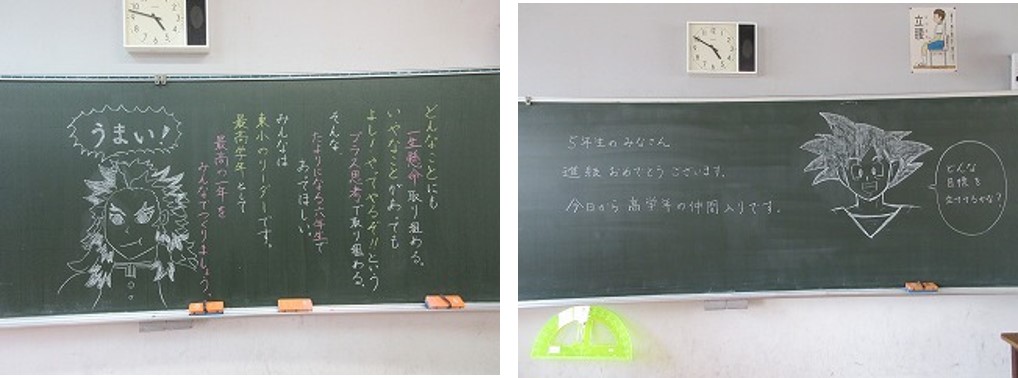 うまい!
どんなことにも
一生懸命取り組める。
いやなことがあっても
よし!やってやるぞ!!という
プラス思考で取り組める。
そんな
たよりになる六年生で
あってほしい。
みんなは
東小のリーダーです。
最高学年として
最高の一年を
みんなでつくりましょう。
5年生のみなさん
進級おめでとうございます。
今日から高学年の仲間入りです。
どんな
目標を
立てるかな?
立腰